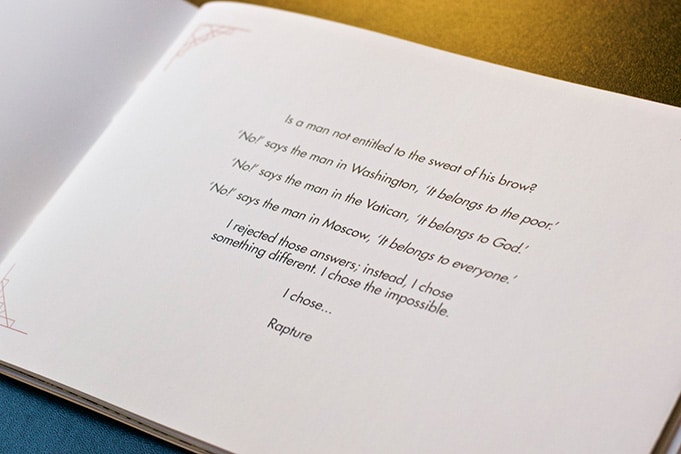 Is a man not entitled to the sweat of his brow?
'No!' says the man in Washington, 'It belongs to the poor.'
'No!' says the man in the Vatican, 'It belongs to God.'
'No!' says the man in Moscow, 'It belongs to everyone.'
I rejected those answers; instead, I chose
something different. I chose the impossible.
I chose...
Rapture